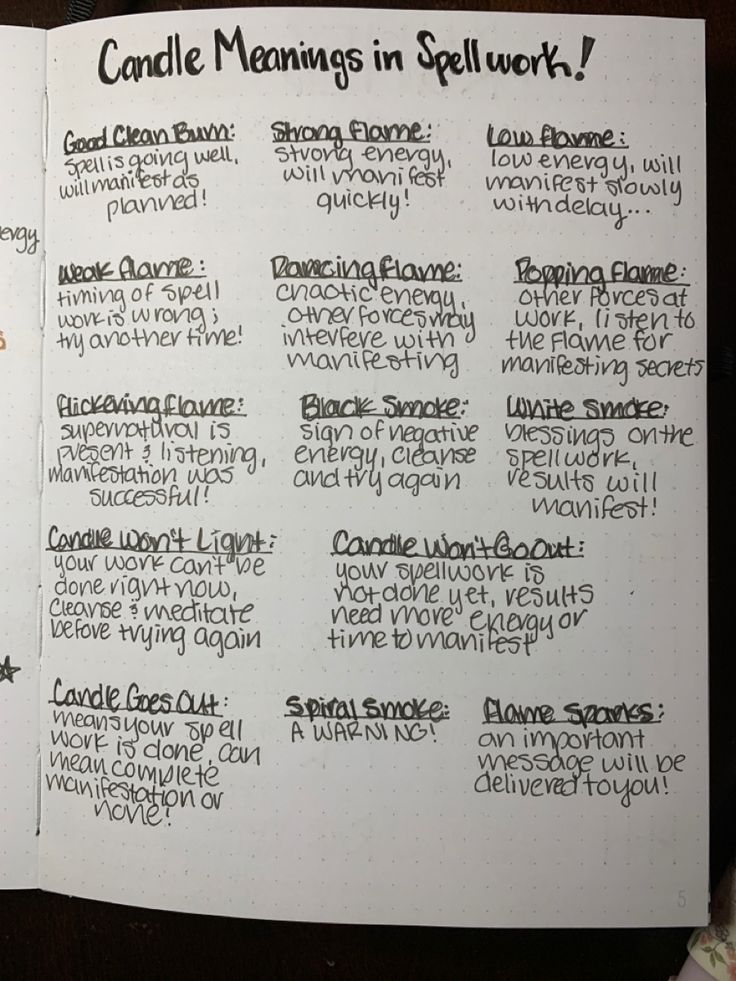 Candle Meanings in Spellwork!
Good Clean Burn:
spell is going well,
will manifest as
planned!
Strong Flame:
strong energy,
will manifest
quickly!
Low flame:
low energy, will
manifest slowly
with delay...
Weak flame:
timing of spell
work is wrong;
try another time!
Dancing flame:
chaotic energy,
other forces may
interfere with
manifesting
Popping flame:
other forces at
work, listen to
the flame for
manifesting secrets
flickering flame:
supernatural is
present & listening,
manifestation was
successful!
Black Smoke:
sign of negative
energy, cleanse
and try again
White smoke:
blessings on the
spellwork,
results will
manifest!
Candle Won't Light:
your work can't be
done right now,
cleanse & meditate
before trying again
Candle Won't Go Out:
your spellwork is
not done yet, results
need more energy or
time to manifest
Candle Goes Out:
means your spell
work is done, can
mean complete
manifestation or
none!
Spiral Smoke:
A WARNING!
Flame Sparks:
an important
message will be
delivered to you!
5